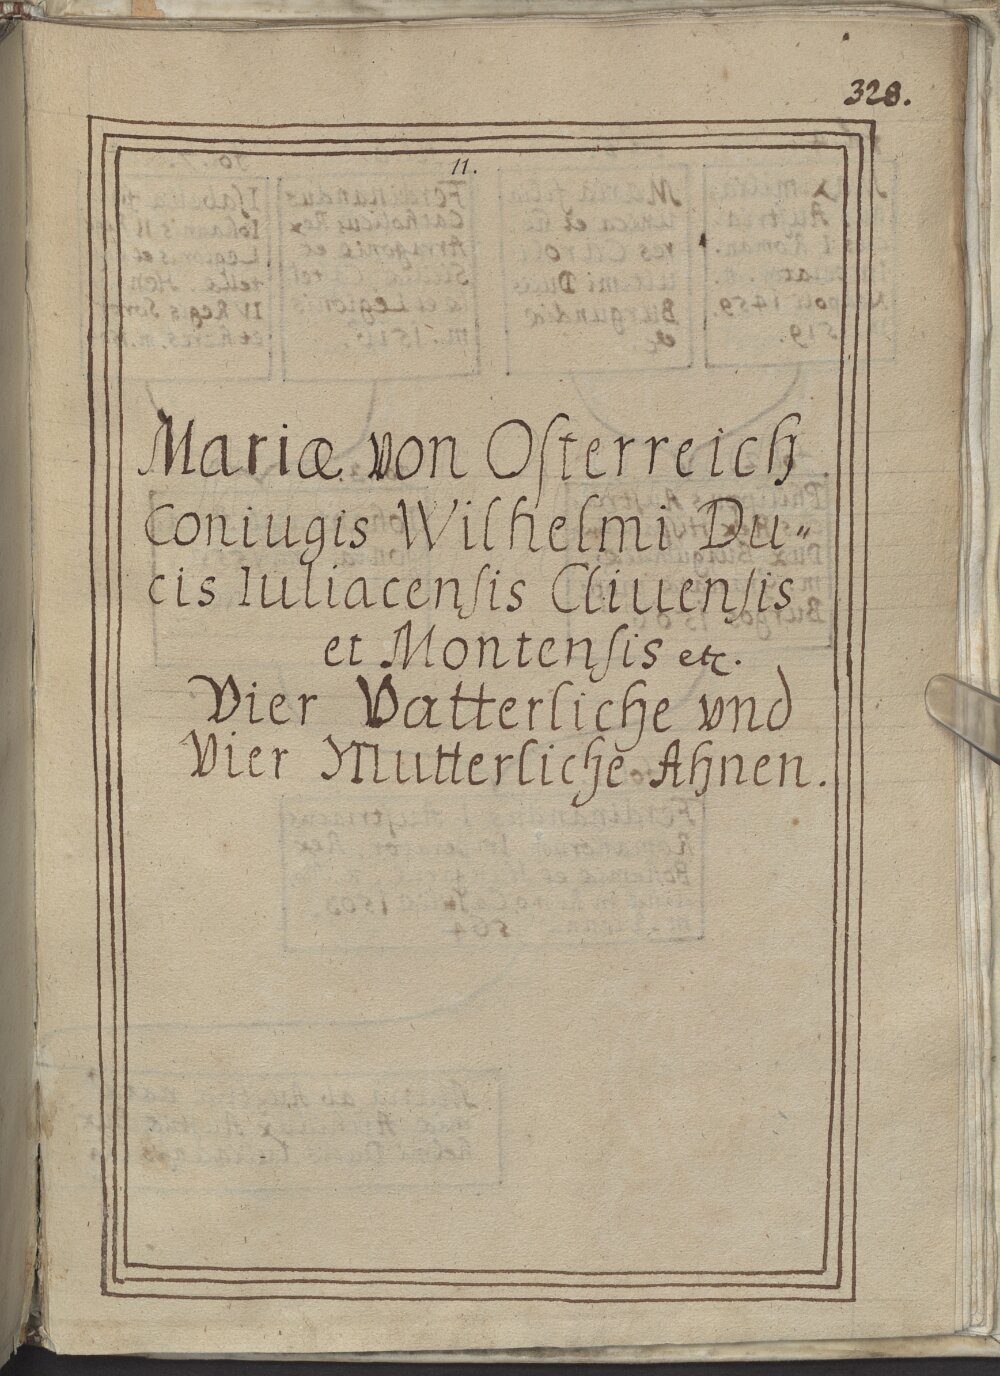 328.
11.
Mariæ von Oſterreich
Coniugis Wilhelmi Du„
cis Iuliacenſis Cliuenſis
et Montenſis etc.
Vier Vatterliche vnd
Vier Mutterliche Ahnen.